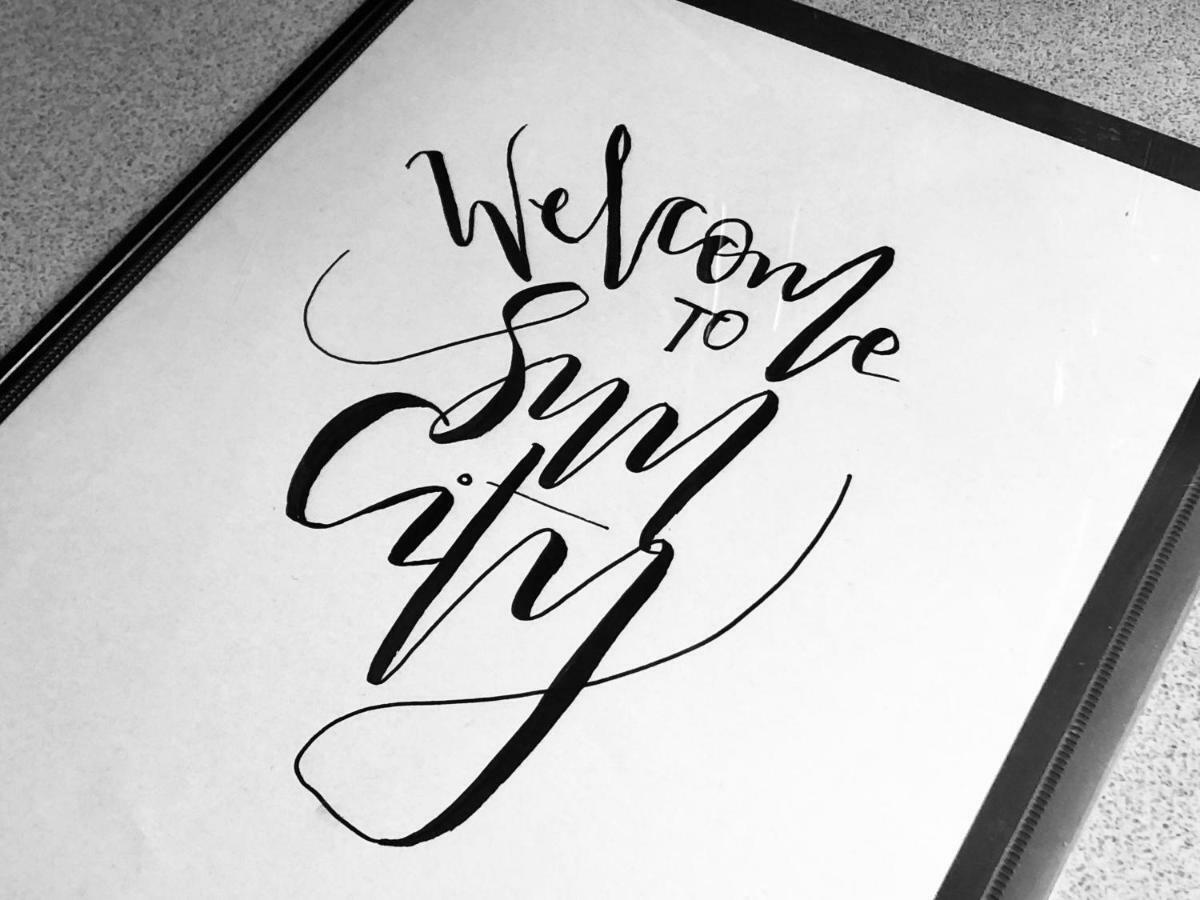 Welcome
TO
Sym
City